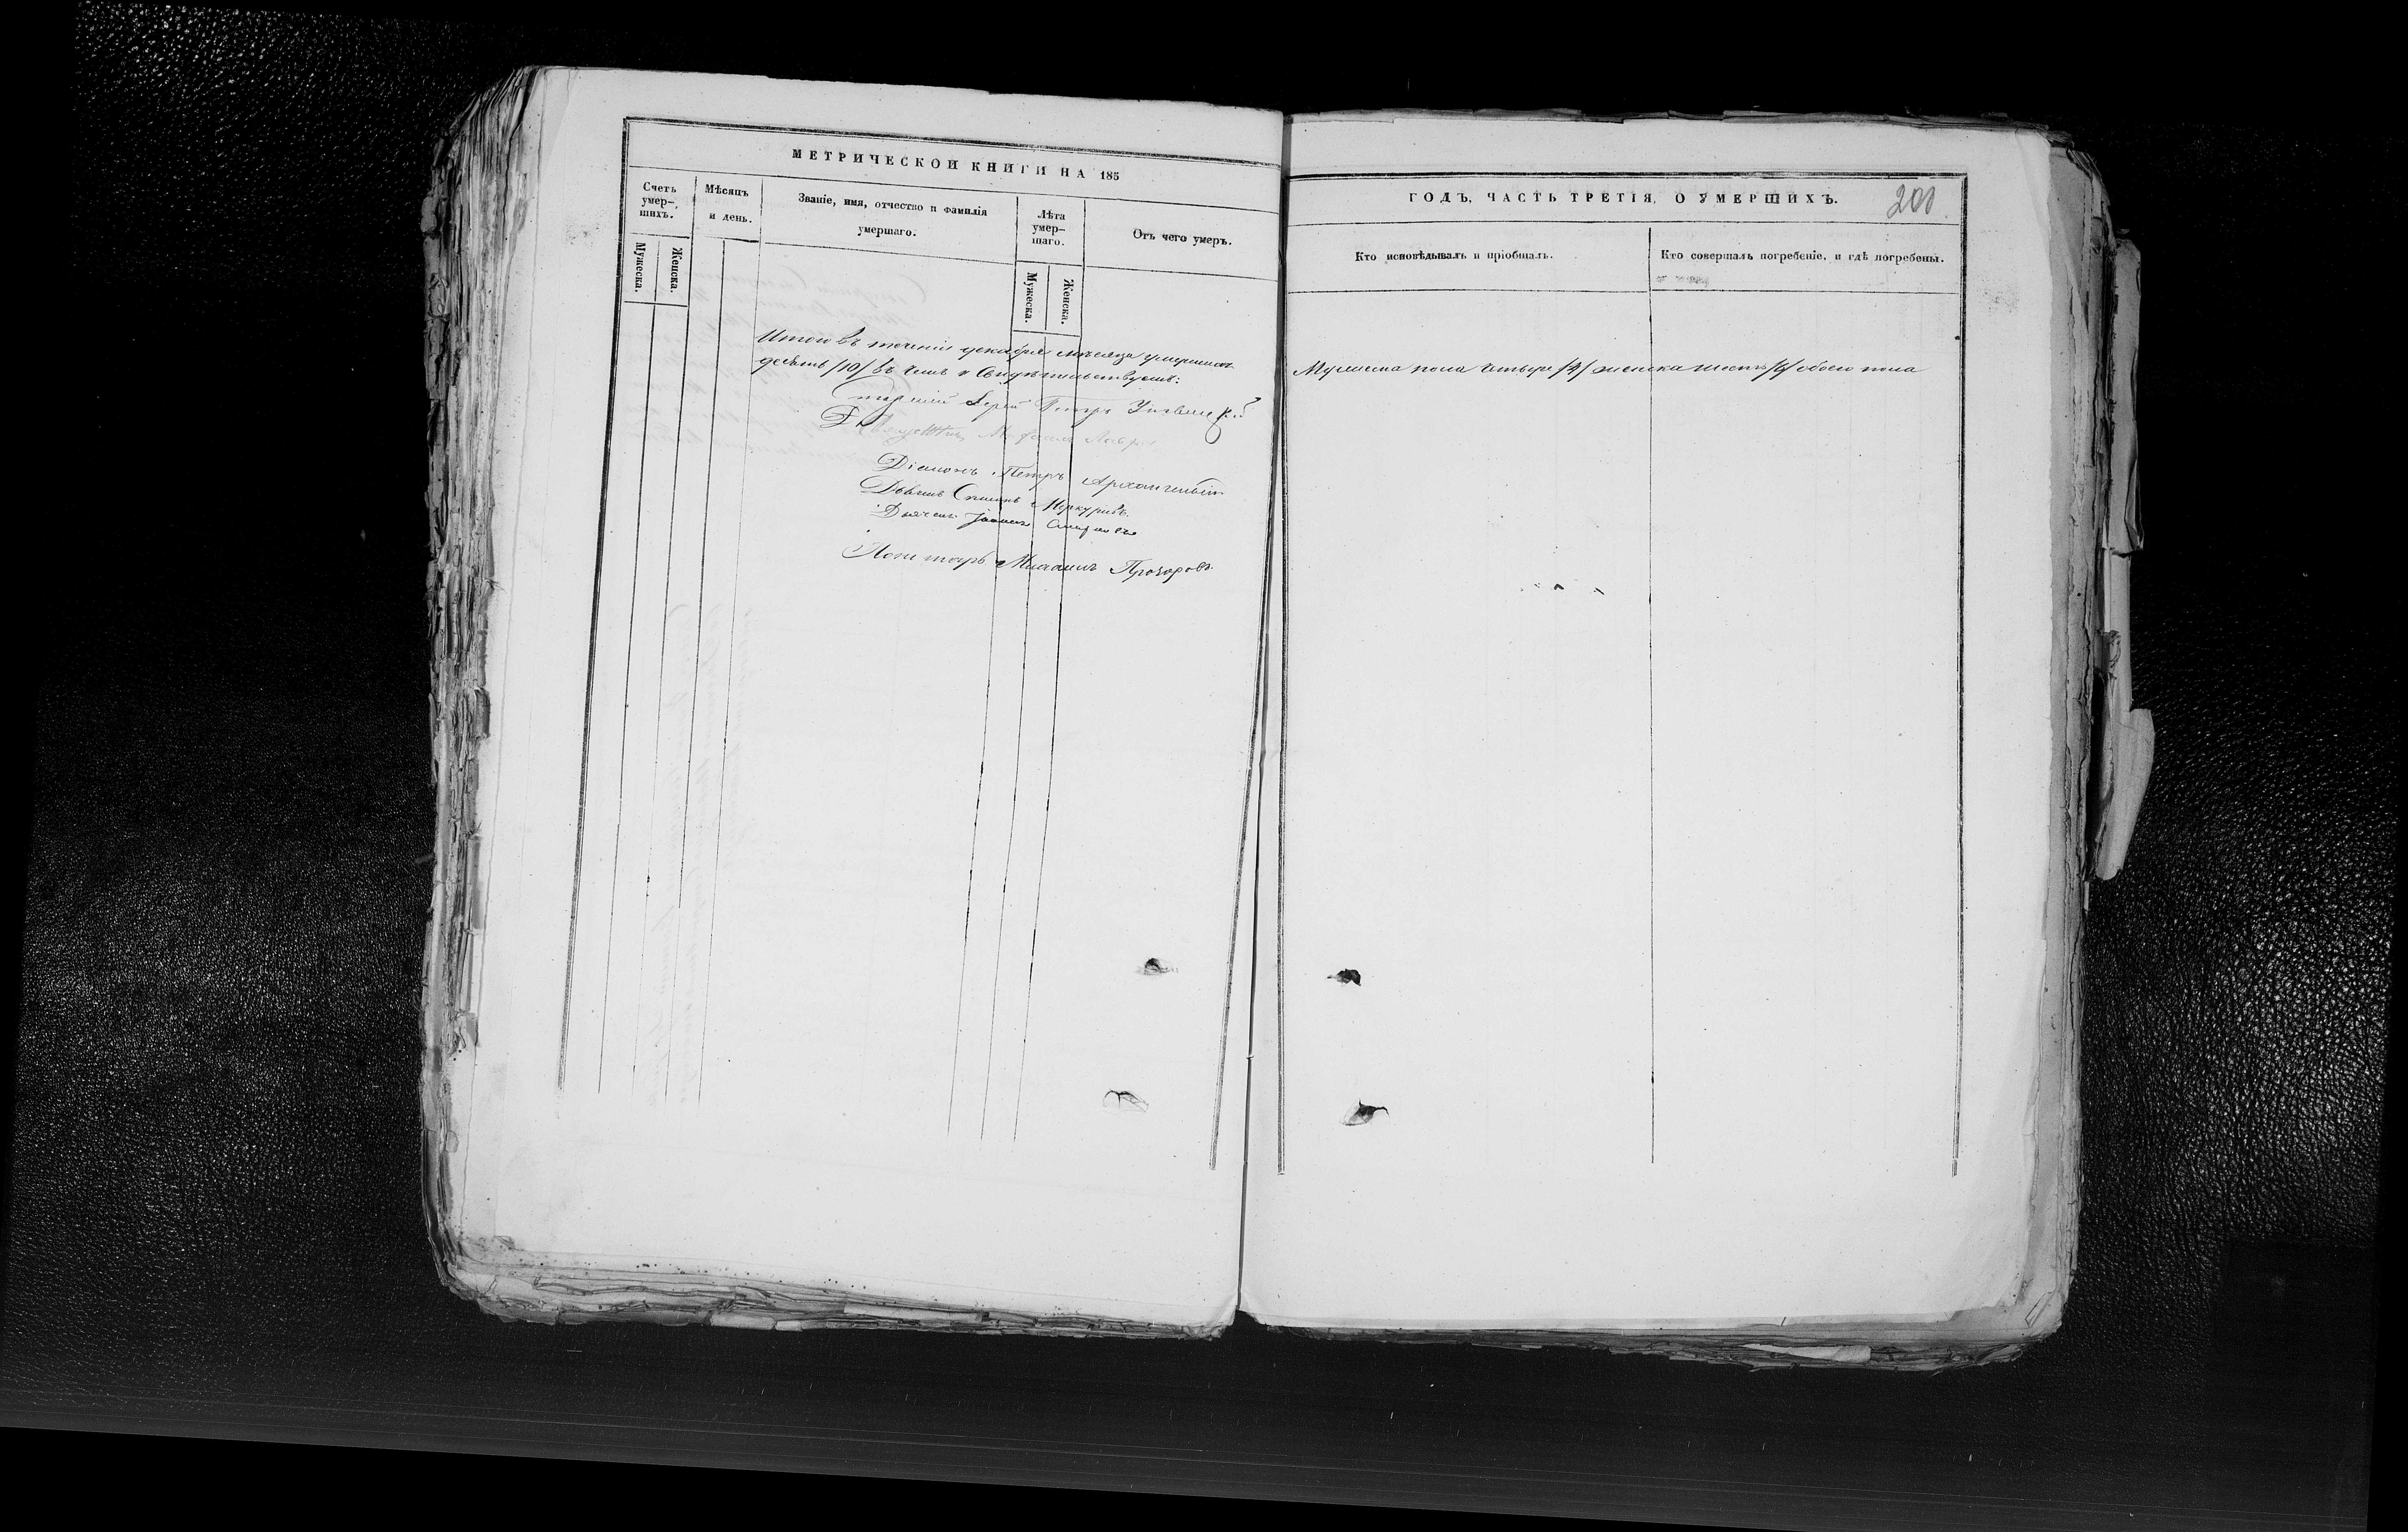 МЕТРИЧЕСКОЙ КНИГИ НА 185
Счетъ умер-шихъ.
Мужеска.
Женска.
Мѣсяцъ и день.
Званіе, имя, отчество и фамилія умершаго.
Лѣта умер-шаго.
Мужеска.
Женска.
Отъ чего умеръ.
Итого въ теченіи декабря мѣсяца умершихъ
десять /10/ въ чемъ и свидѣтельствуемъ:
Іерей Петръ
Священникъ
Діаконъ Петръ Архангельскій
Дьячекъ Меркурьевъ.
Дьячекъ Іоаннъ Смирновъ
Пономарь Михаилъ Прозоровъ
ГОДЪ, ЧАСТЬ ТРЕТІЯ, О УМЕРШИХЪ.
Кто исповѣдывалъ и пріобщалъ.
Кто совершалъ погребеніе, и гдѣ погребены.
Мужеска пола четыре /4/ женска шесть /6/ обоего пола